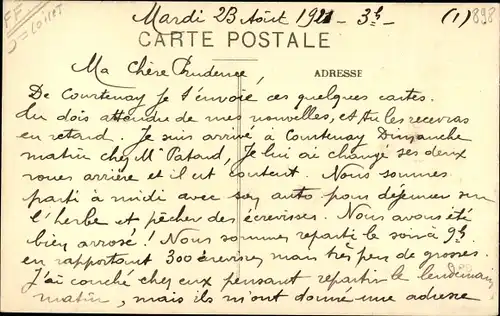 FF
J = Loiret
Mardi 23 Août 1921 - 3h - (1) 898
CARTE POSTALE
Ma Chère Prudence,
ADRESSE
De Courtenay je t'envoie ces quelques cartes.
Tu dois attendre de mes nouvelles, et tu les recevras
en retard. Je suis arrivé à Courtenay Dimanche
matin chez Mr Pataud, Je lui ai changé ses deux
roues arrière et il est content. Nous sommes
parti à midi avec son auto pour déjeuner sur
l'herbe et pêcher des écrevisses. Nous avons été
bien arrosé ! Nous sommes reparti le soir à 9h
en rapportant 300 écrevisses mais très peu de grosses.
J'ai couché chez eux pensant repartir le lendemain
matin, mais ils m'ont donné une adresse